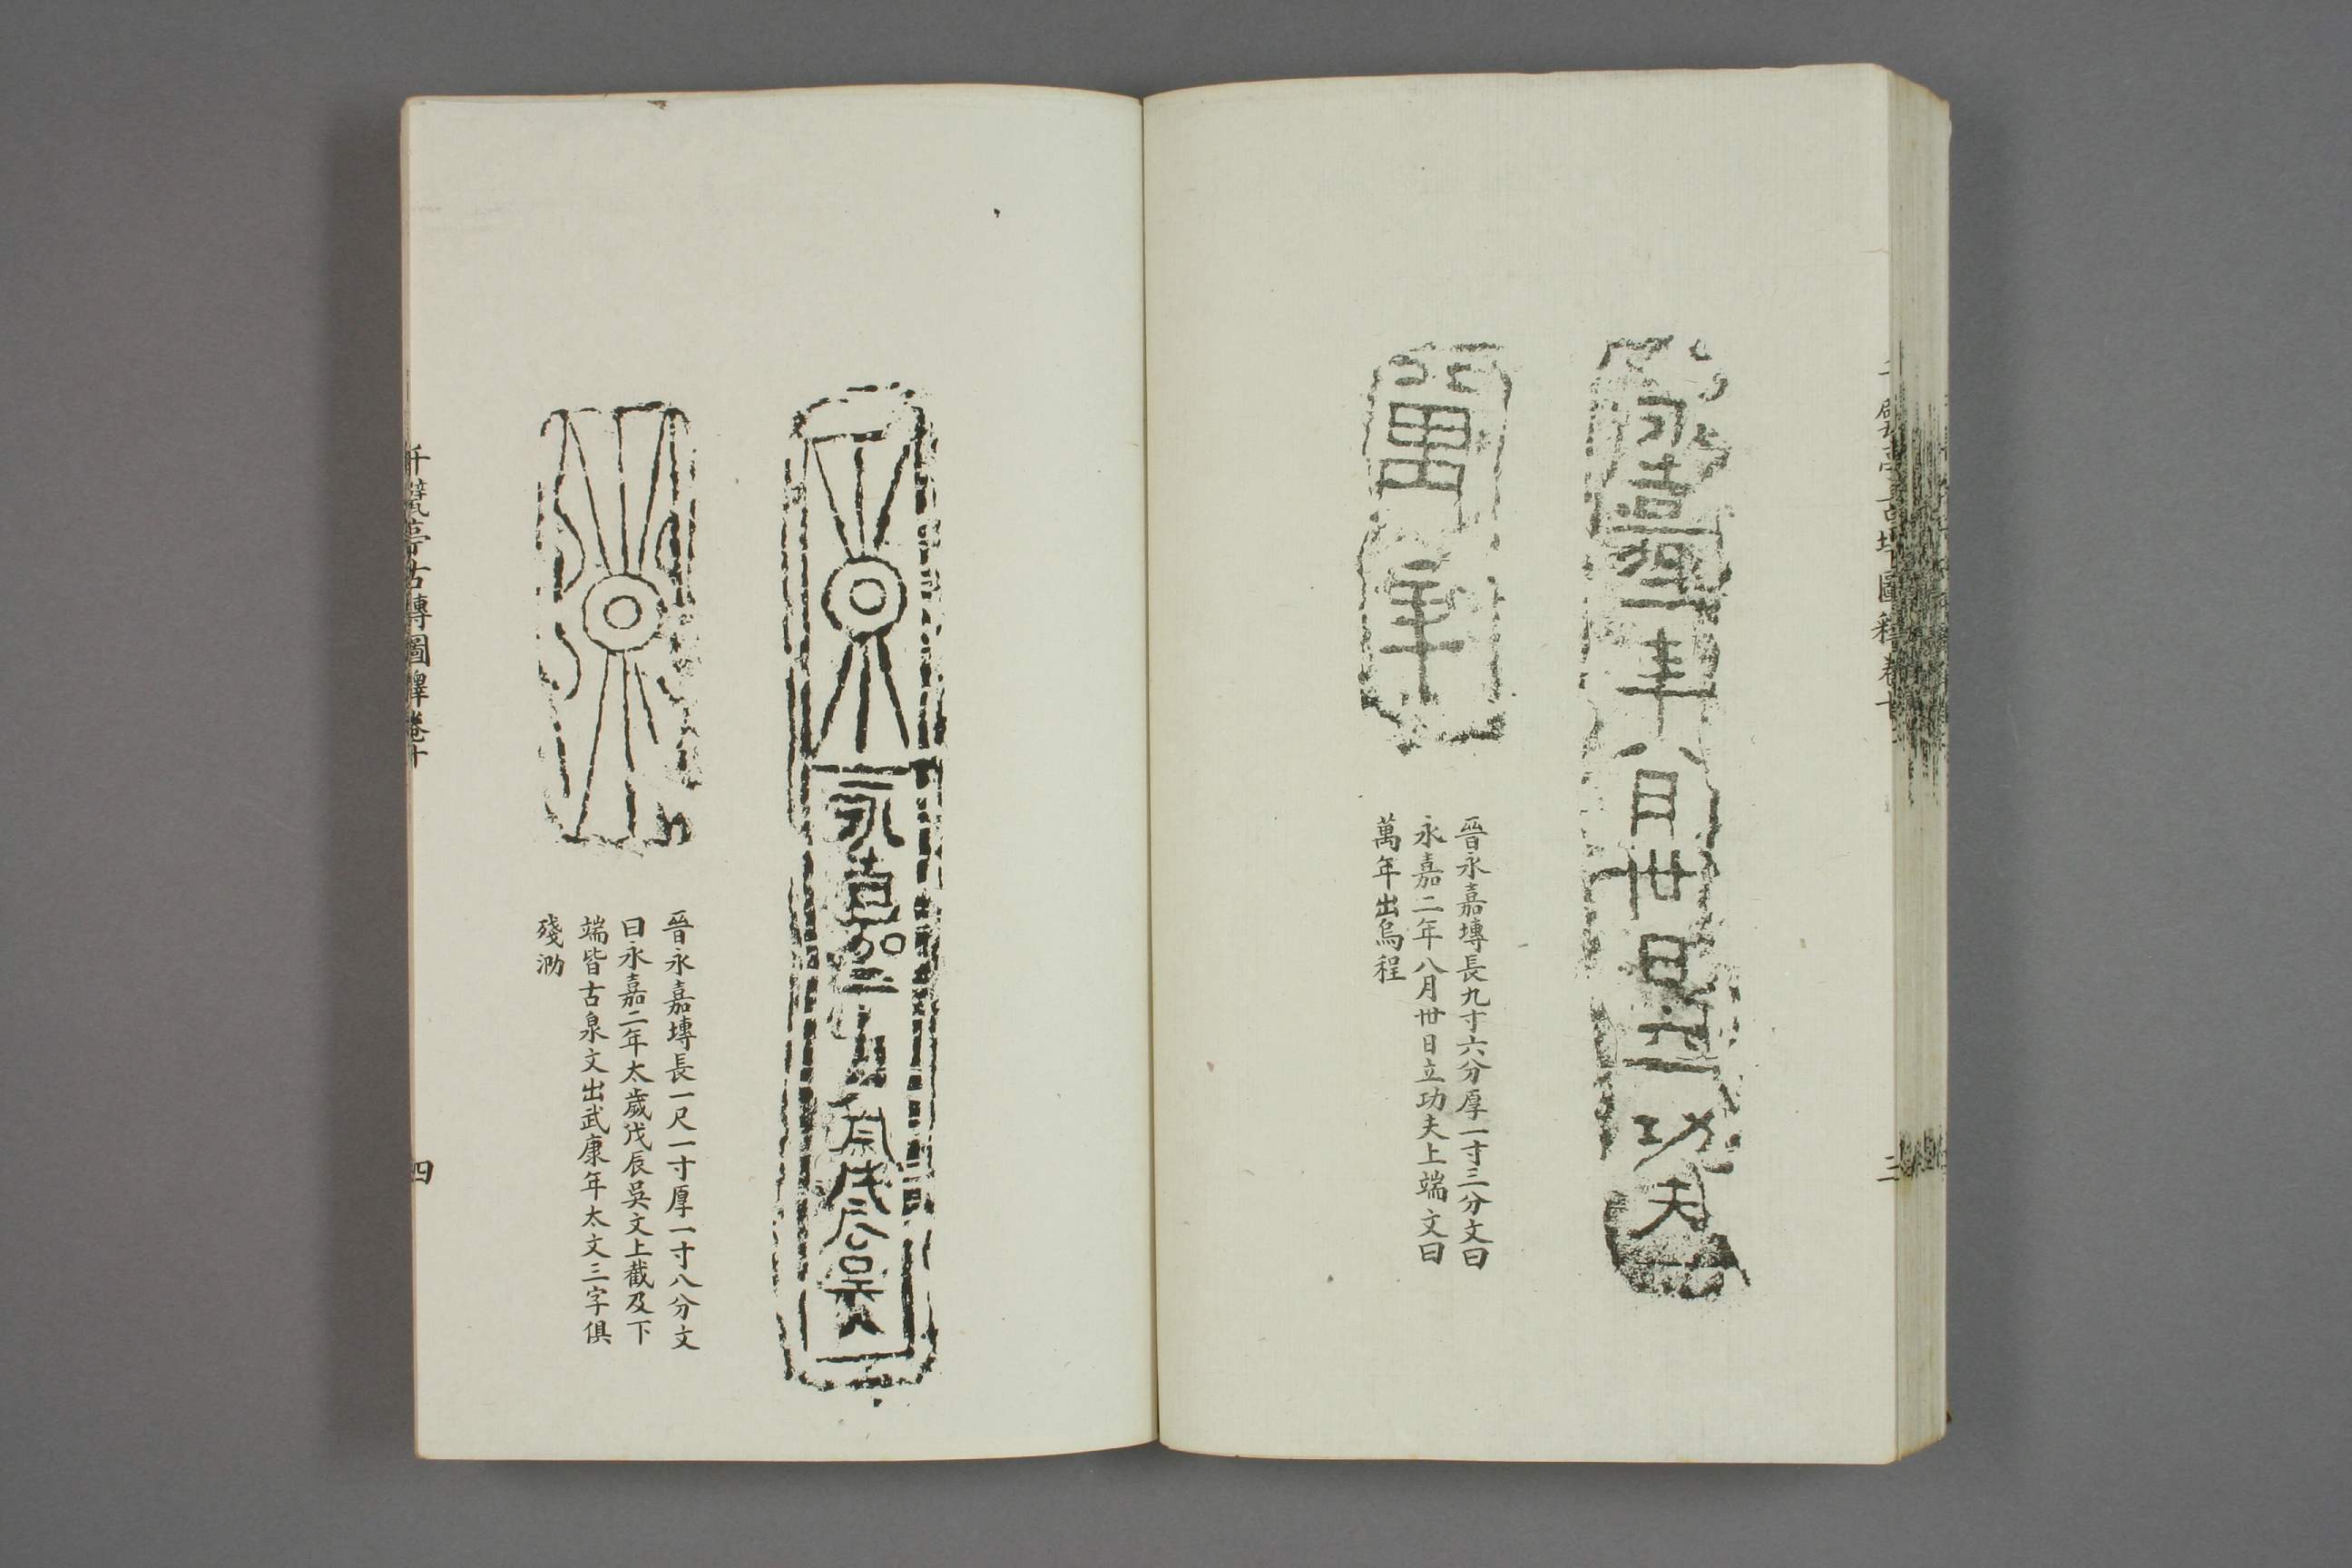 永嘉二年八月卅日立功夫
萬年
晉永嘉塼長九寸六分厚一寸三分文曰
永嘉二年八月卅日立功夫上端文曰
萬年出烏程
三
永嘉二年
戊辰吳
晉永嘉塼長一尺一寸厚一寸八分文
曰永嘉二年太歲戊辰吳文上截及下
端皆古泉文出武康年太文三字俱
殘泐
千甓亭古塼圖釋卷十
四